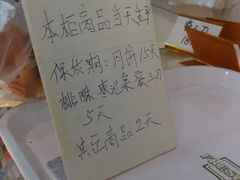 本柜商品当天鲜
保质期：月饼15天
桃酥 枣泥条 蛋三刀
5天
其它商品2天